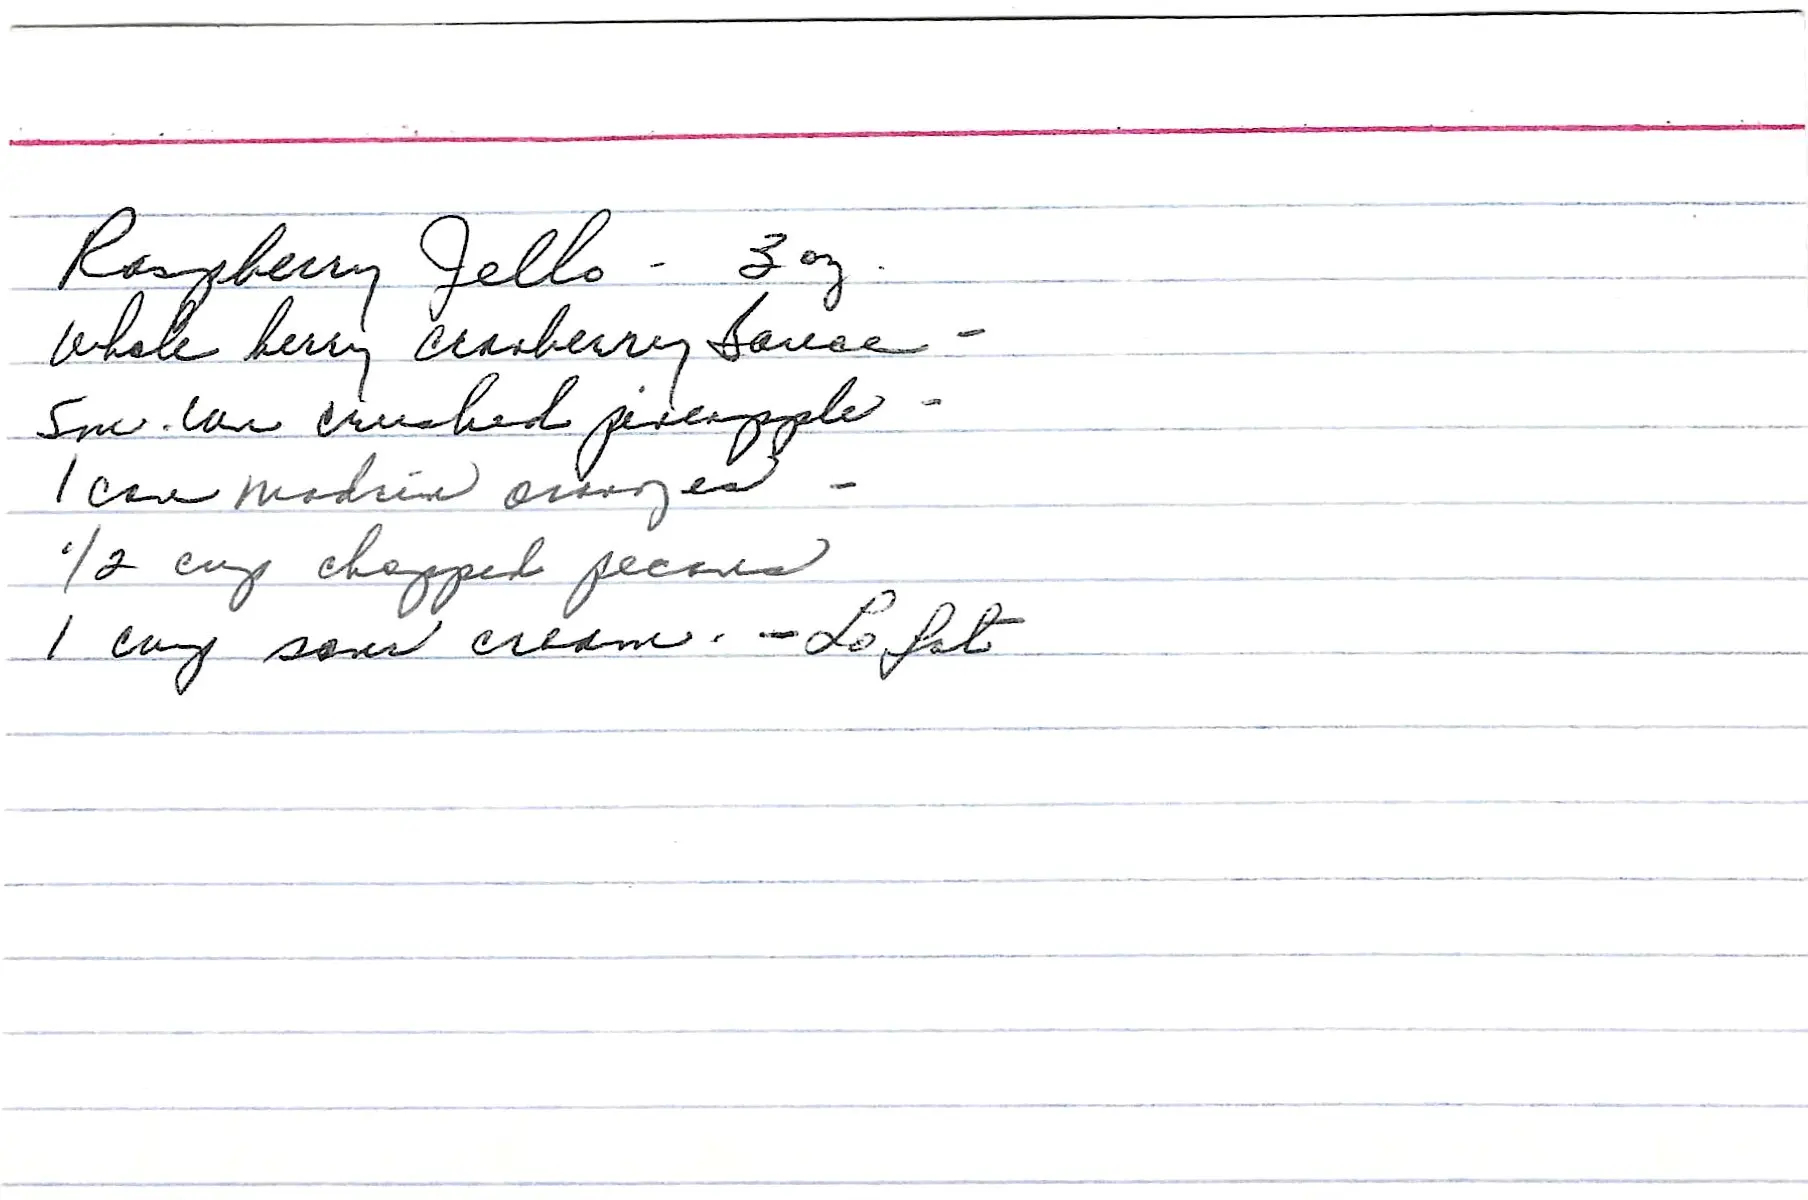 Raspberry Jello - 3 oz.
Whole berry cranberry sauce -
Sm. can crushed pineapple -
1 can madrin oranges -
1/2 cup chopped pecans
1 cup sour cream. - Lo fat